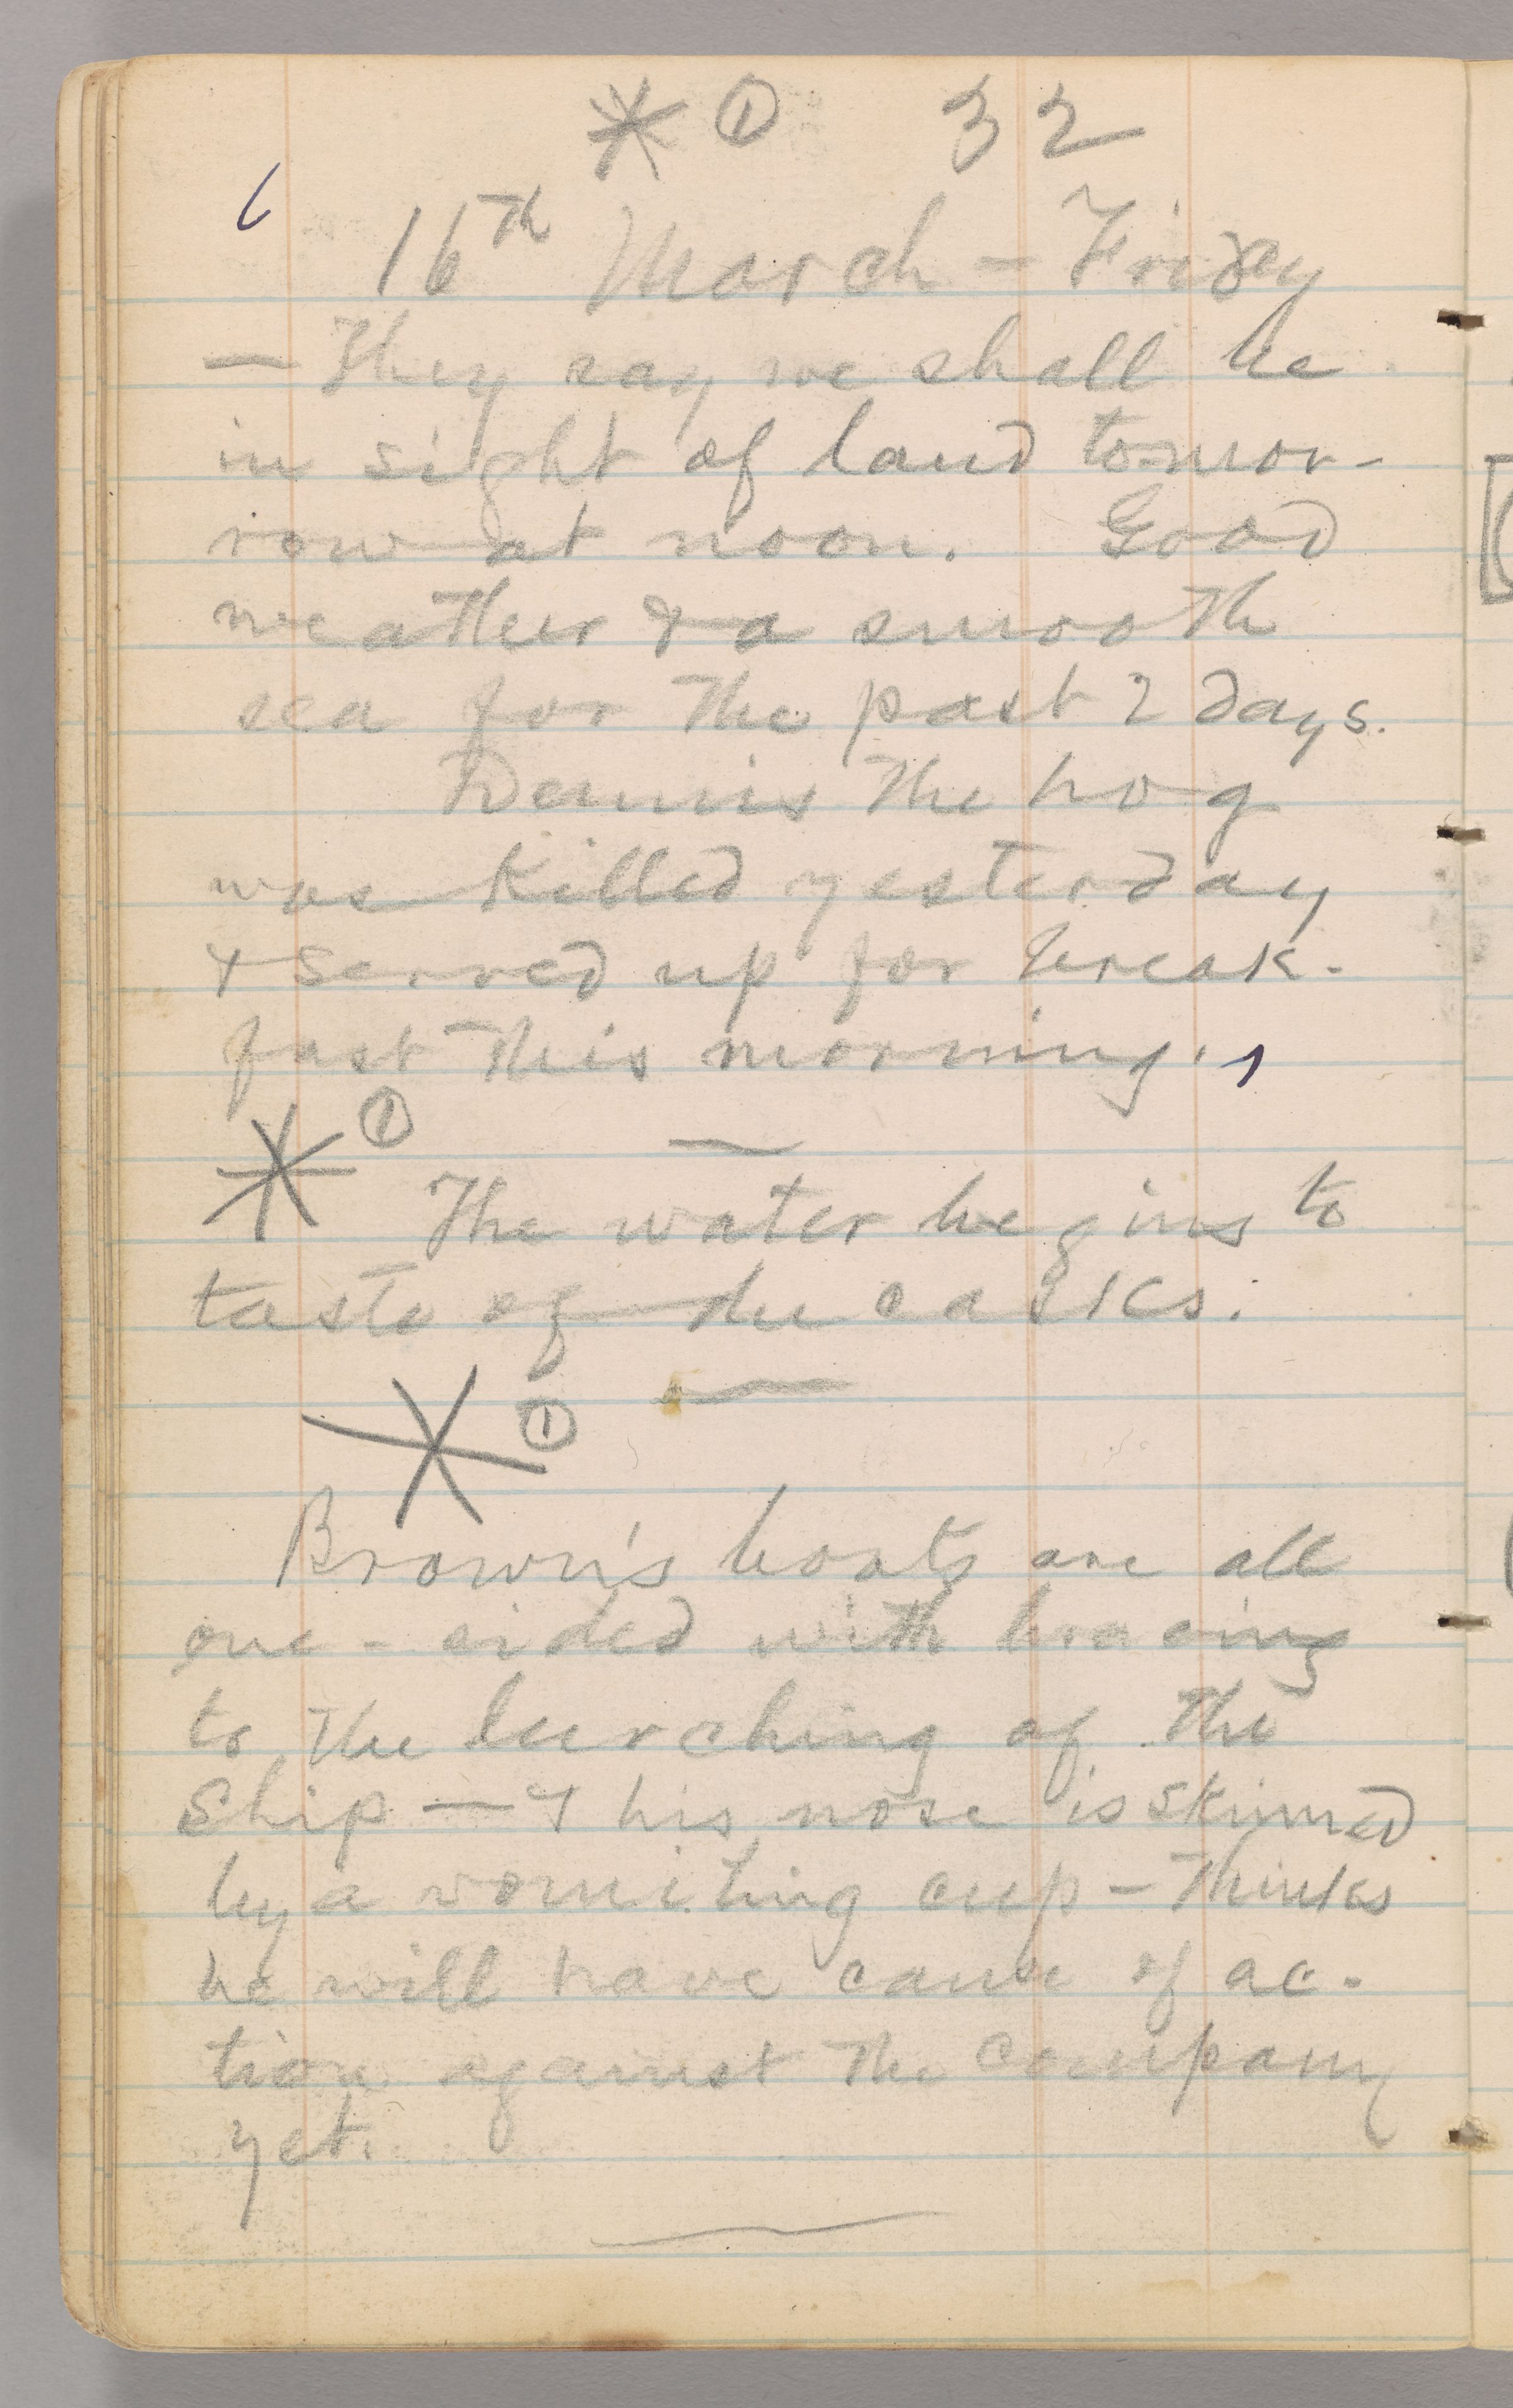 * ① 32
16th March – Friday
— They say we shall be
in sight of land tomor-
row at noon. Good
weather & a smooth
sea for the past 2 days.
Dennis the hog
was killed yesterday
& served up for break-
fast this morning.
* ①
The water begins to
taste of the casks.
* ①
Brown's boots are all
one-sided with bracing
to the lurching of the
Ship — & his nose is skinned
by a vomiting cup – thinks
he will have cause of ac-
tion against the Company
yet.